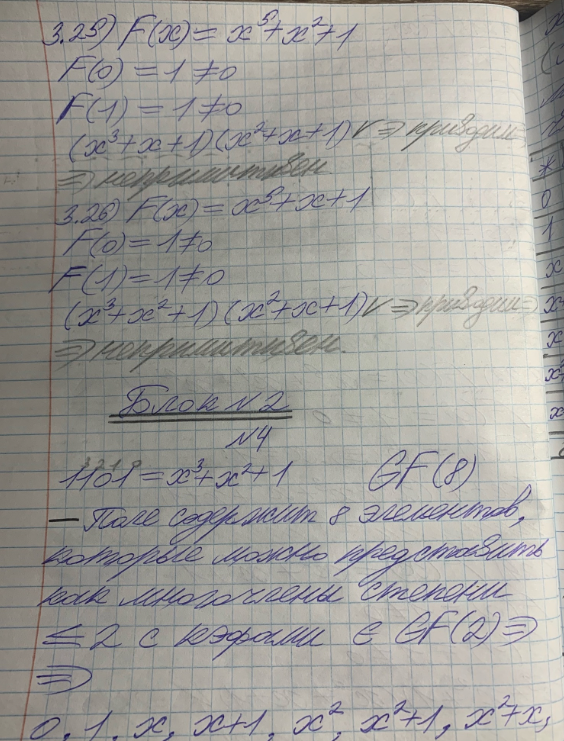 3.25) F(x) = x⁵+x²+1
F(0) = 1 ≠0
F(1) = 1 ≠0
(x³+x+1)(x²+x+1) ∨ ⇒ приводим ⇒
⇒ непримитивен
3.26) F(x) = x⁵+x+1
F(0) = 1≠0
F(1) = 1≠0
(x³+x²+1)(x²+x+1)∨ ⇒ приводим ⇒
⇒ непримитивен.
Блок N 2
N4
1101 = x³+x²+1 GF(8)
— Поле содержит 8 элементов,
которые можно представить
как многочлены степени
≤ 2 с кэфами ∈ GF(2) ⇒
⇒
0, 1, x, x+1, x², x²+1, x²+x,